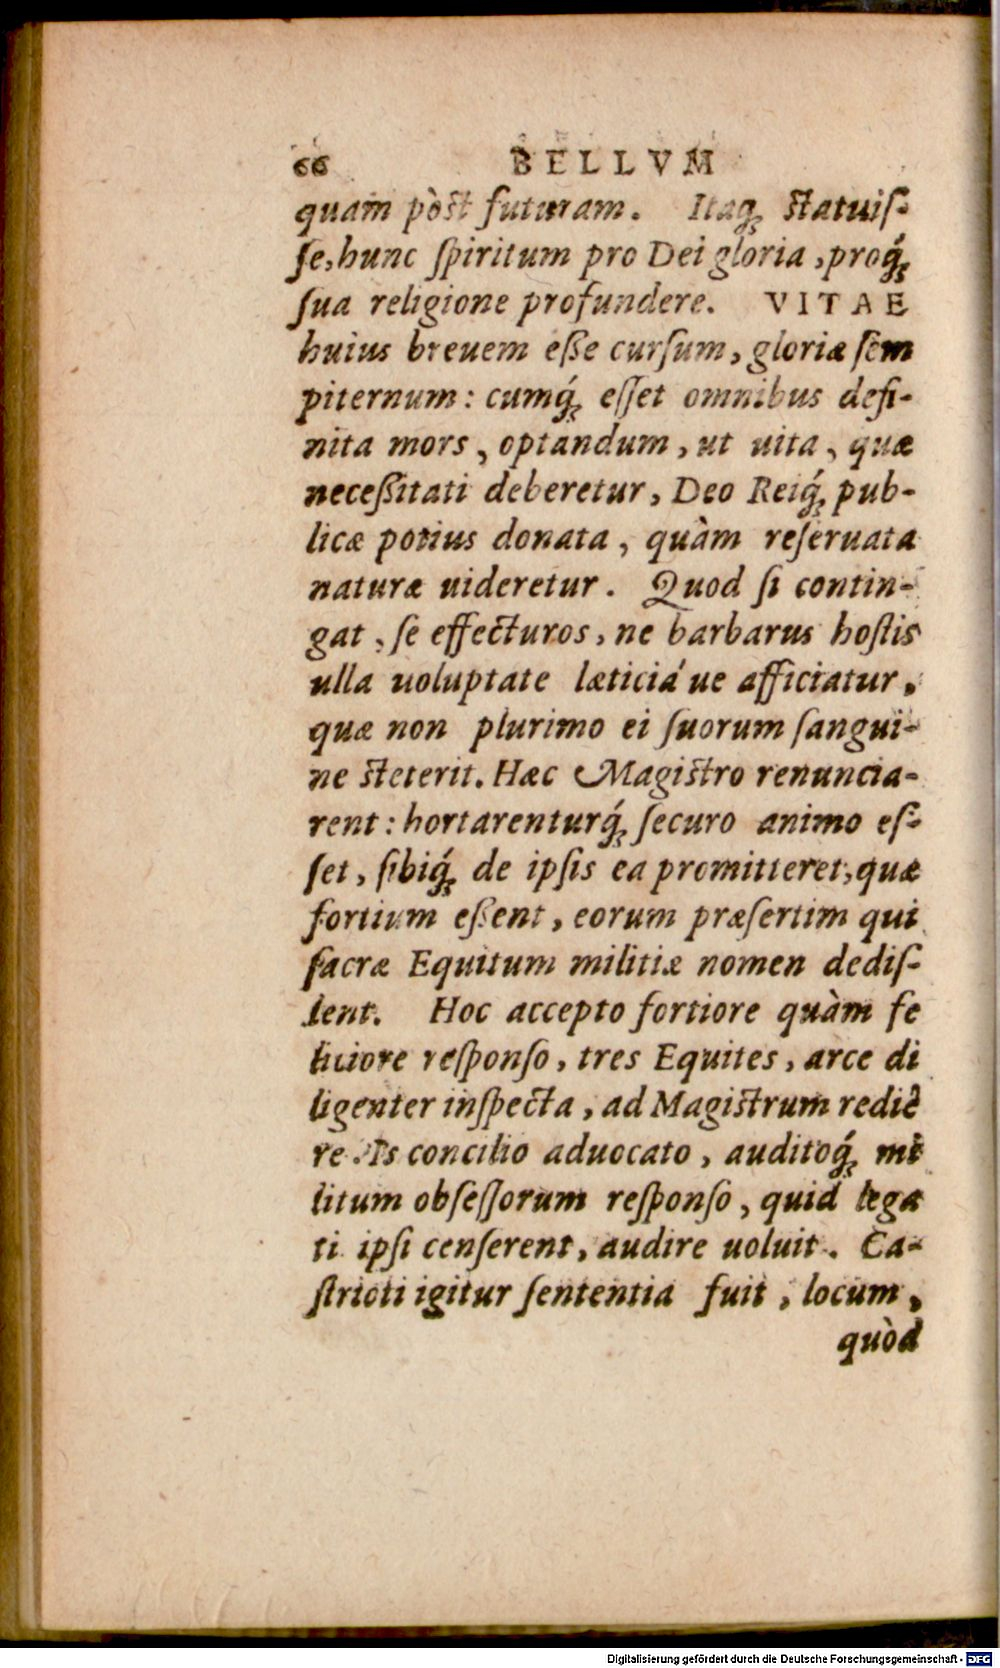 66 BELLVM
quam pòst futuram. Itaq; statuis-
se, hunc spiritum pro Dei gloria, proq́;
sua religione profundere. VITAE
huius breuem esse cursum, gloriæ sem
piternum: cumq́; esset omnibus defi-
nita mors, optandum, ut uita, quæ
necessitati deberetur, Deo Reiq́; pub-
licæ potius donata, quàm reseruata
naturæ uideretur. Quod si contin-
gat, se effecturos, ne barbarus hostis
ulla uoluptate læticiá ue afficiatur,
quæ non plurimo ei suorum sangui-
ne steterit. Hæc Magistro renuncia-
rent: hortarenturq́; securo animo es-
set, sibiq́; de ipsis ea promitteret, quæ
fortium essent, eorum præsertim qui
sacræ Equitum militiæ nomen dedis-
sent. Hoc accepto fortiore quàm fe
liciore responso, tres Equites, arce di
ligenter inspecta, ad Magistrum rediē
re. Is concilio aduocato, auditoq́; mi
litum obsessorum responso, quid lega
ti ipsi censerent, audire uoluit. Ca-
stricti igitur sententia fuit, locum,
quòd
Digitalisierung gefördert durch die Deutsche Forschungsgemeinschaft - DFG